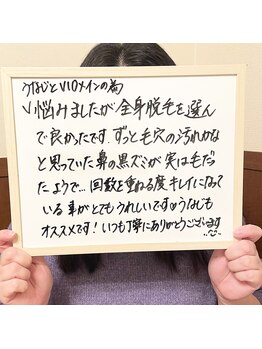 うなじとVIOメインの為
悩みましたが全身脱毛を選ん
で良かったです。ずっと毛穴の汚れかな
と思っていた鼻の黒ズミが実は毛だっ
たようで…回数を重ねる度キレイになって
いる事がとてもうれしいです♡うなじも
オススメです！いつも丁寧にありがとうございます